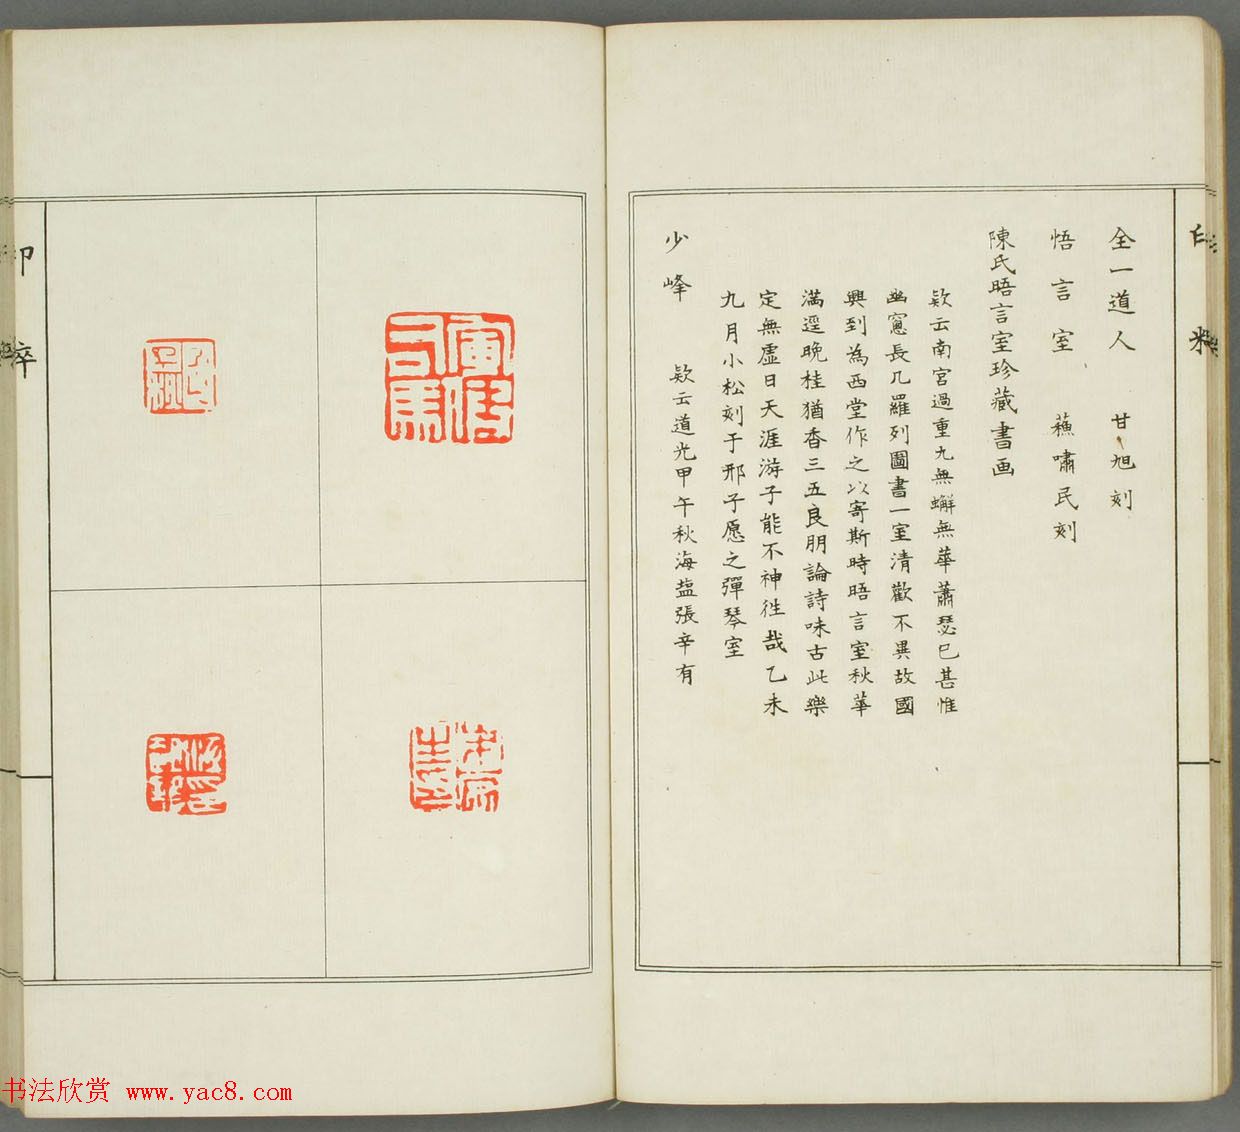 全一道人 甘旭刻
悟言室 蘓嘯民刻
陳氏晤言室珍藏書画
欵云南宮過重九無蠏無華蕭瑟已甚惟
幽窻長几羅列圖書一室清歡不異故國
興到為西堂作之以寄斯時晤言室秋華
滿逕晚桂猶香三五良朋論詩味古此樂
定無虛日天涯游子能不神徃哉乙未
九月小松刻于邢子愿之彈琴室
少峰 欵云道光甲午秋海盐張辛有
印
书法欣赏 www.yac8.com